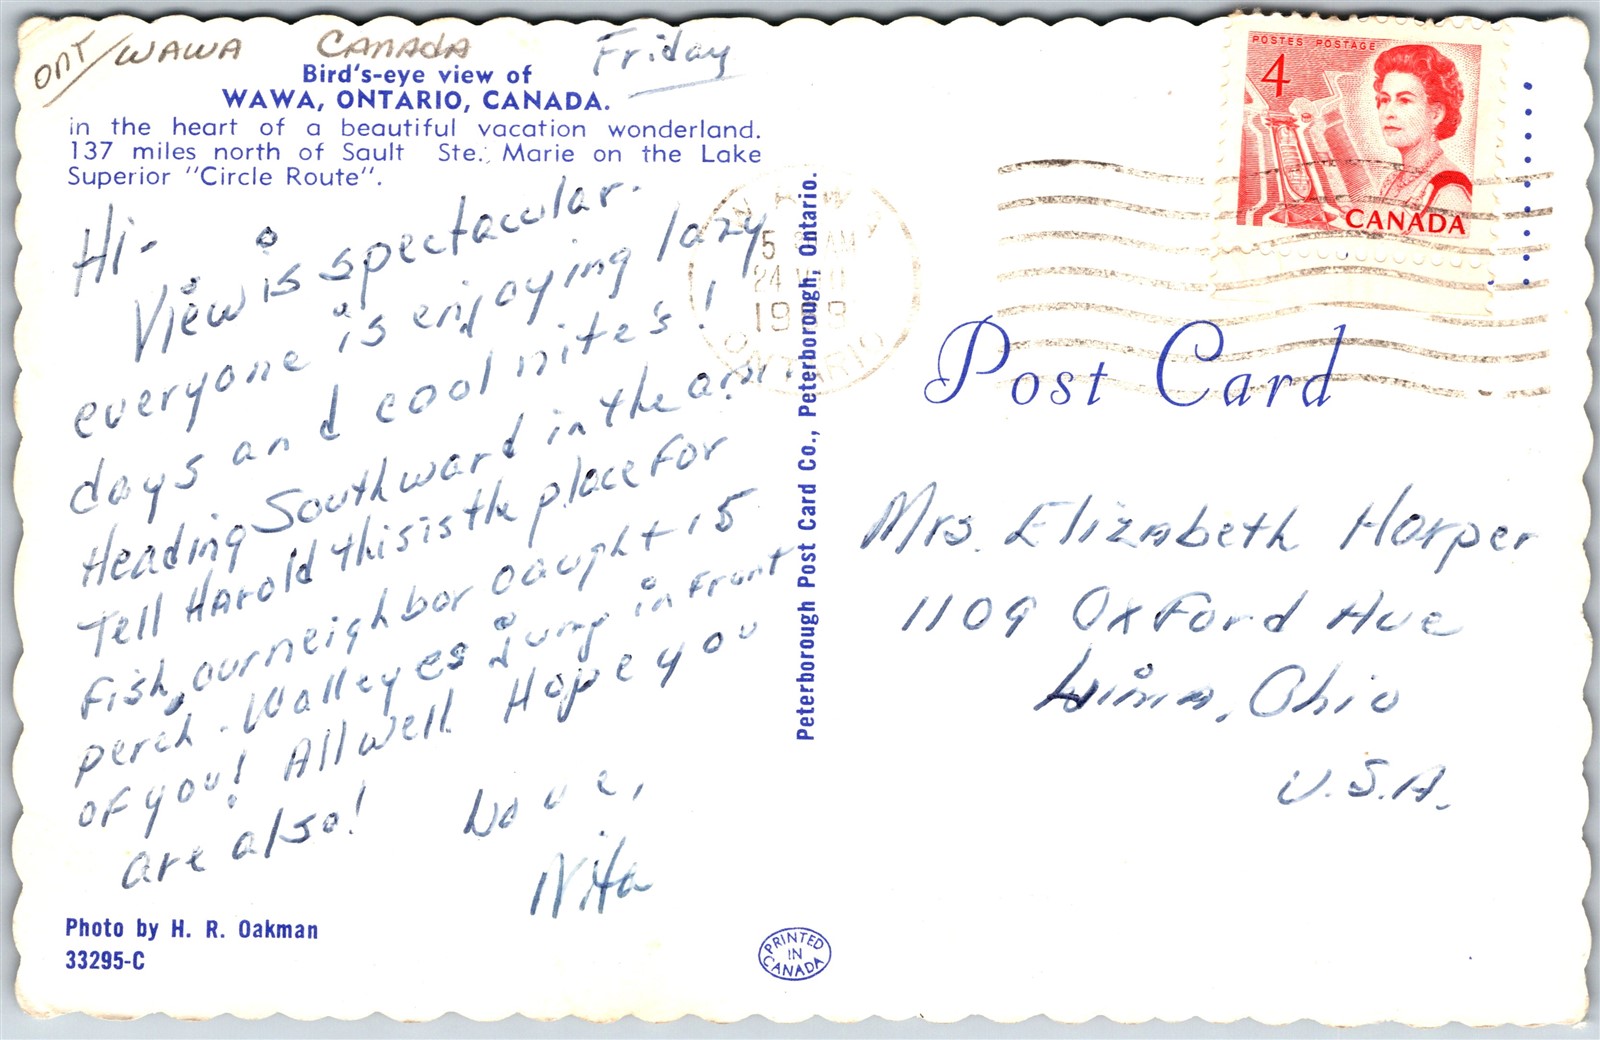 ONT/WAWA CANADA Friday
Bird's-eye view of
WAWA, ONTARIO, CANADA.
in the heart of a beautiful vacation wonderland.
137 miles north of Sault Ste. Marie on the Lake
Superior "Circle Route".
Hi-
View is spectacular.
everyone is enjoying lazy
days and cool nite's!
Heading Southward in the a.m.
Tell Harold this is the place for
fish, our neighbor caught 15
perch - Walleyes jump in front
of you! All well. Hope you
are also!
Love,
Nita
Photo by H. R. Oakman
33295-C
Peterborough Post Card Co., Peterborough, Ontario.
PRINTED
IN
CANADA
WAWA
5 AM
24
19 9
ONTARIO
POSTES POSTAGE
4
CANADA
Post Card
Mrs. Elizabeth Harper
1109 Oxford Ave
Lima, Ohio
U.S.A.